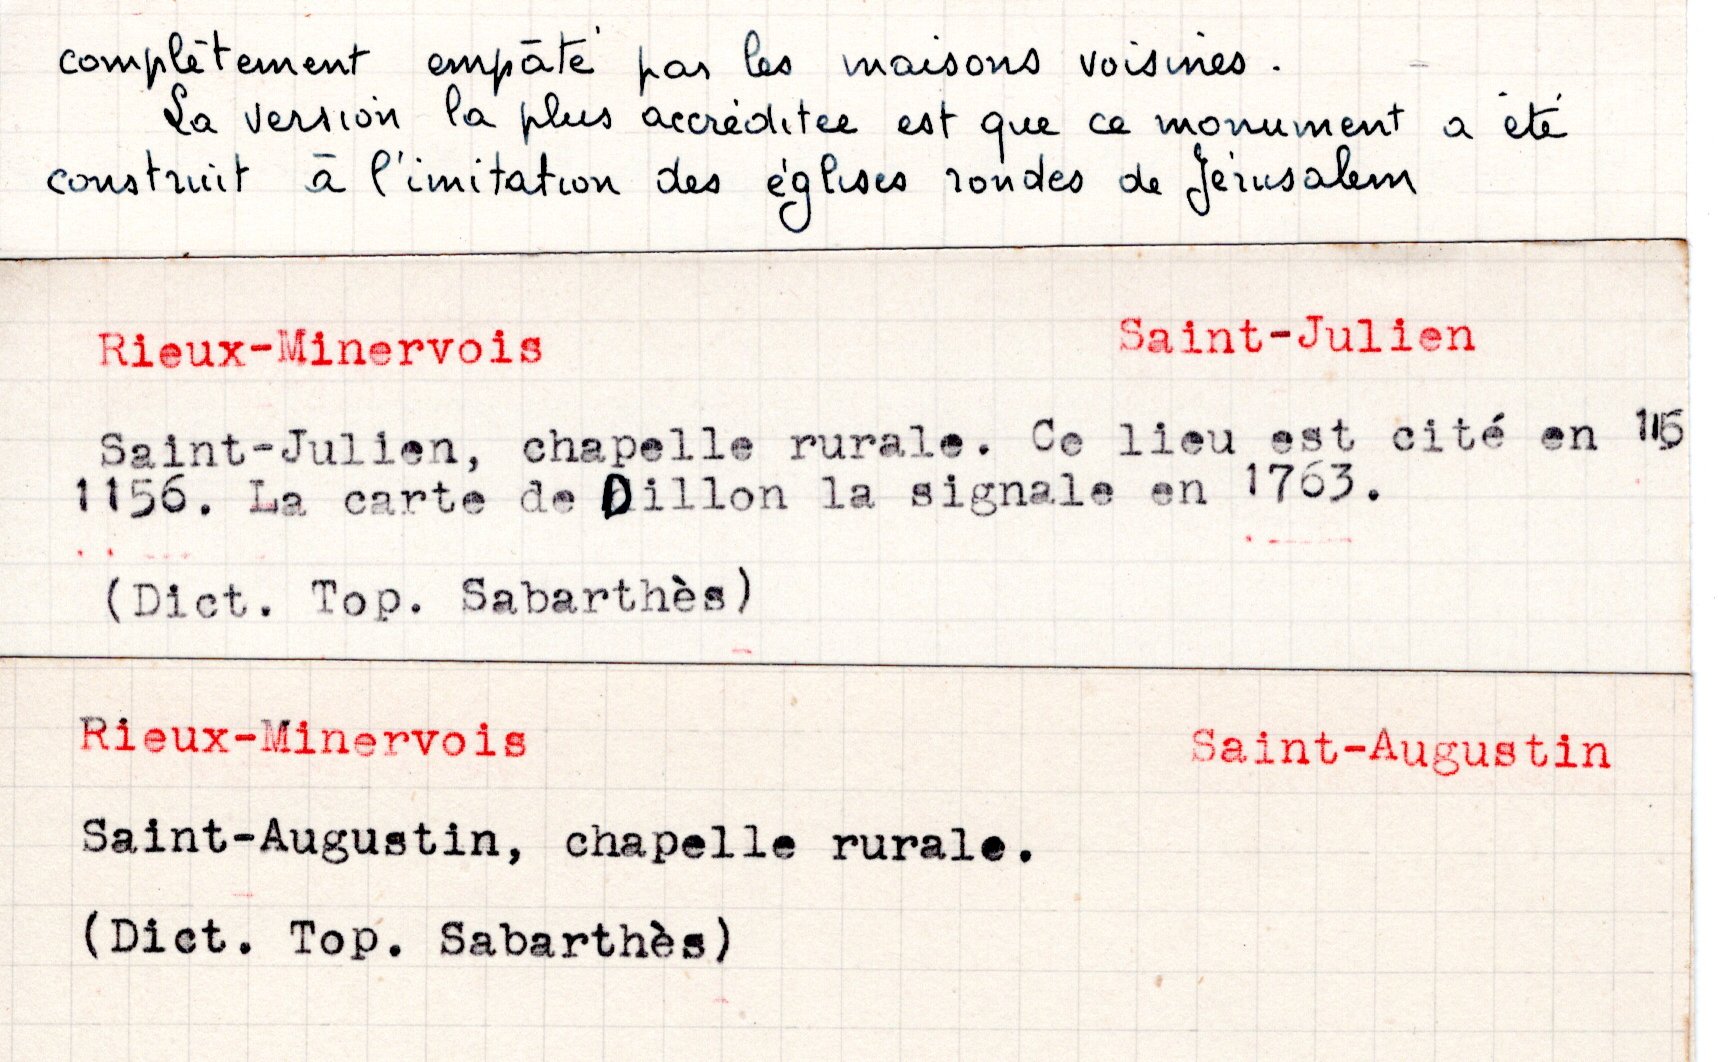 complètement empâté par les maisons voisines.
La version la plus accréditée est que ce monument a été
construit à l'imitation des églises rondes de Jérusalem
Rieux-Minervois Saint-Julien
Saint-Julien, chapelle rurale. Ce lieu est cité en 115
1156. La carte de Dillon la signale en 1763.
(Dict. Top. Sabarthès)
Rieux-Minervois Saint-Augustin
Saint-Augustin, chapelle rurale.
(Dict. Top. Sabarthès)